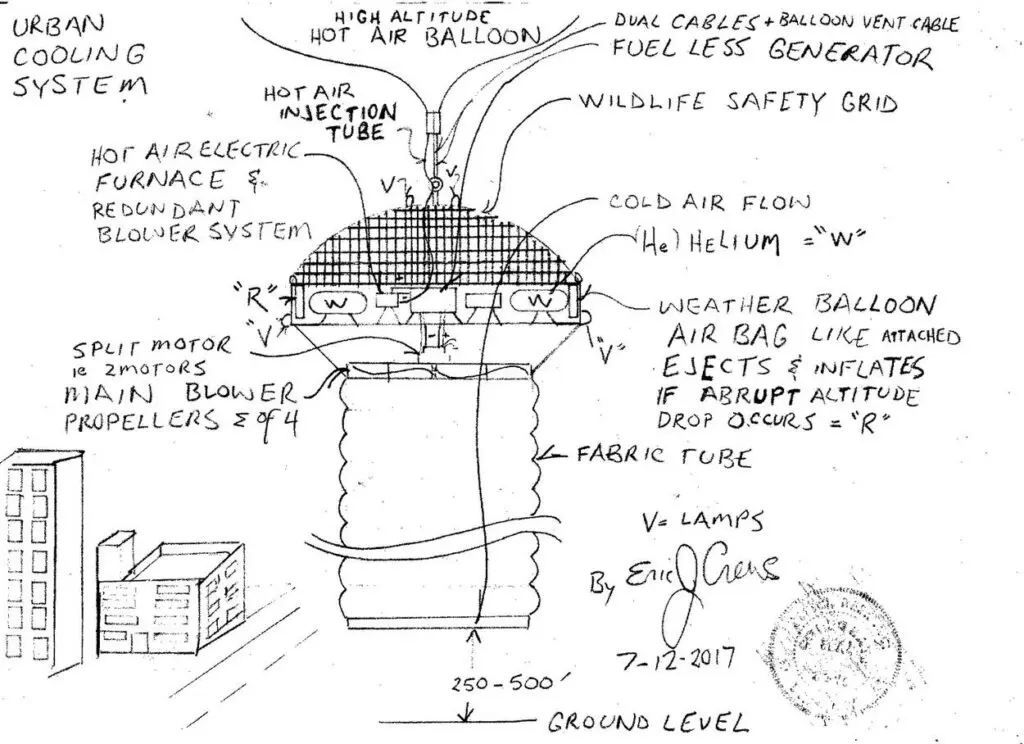 URBAN
COOLING
SYSTEM
HIGH ALTITUDE
HOT AIR BALLOON
DUAL CABLES + BALLOON VENT CABLE
FUEL LESS GENERATOR
HOT AIR
INJECTION
TUBE
WILDLIFE SAFETY GRID
HOT AIR ELECTRIC
FURNACE &
REDUNDANT
BLOWER SYSTEM
V
V
COLD AIR FLOW
(He) HELIUM = "W"
"R"
W
W
"V"
"V"
WEATHER BALLOON
AIR BAG LIKE ATTACHED
EJECTS & INFLATES
IF ABRUPT ALTITUDE
DROP OCCURS = "R"
SPLIT MOTOR
ie 2 MOTORS
MAIN BLOWER
PROPELLERS Σ of 4
FABRIC TUBE
V = LAMPS
By Eric J Crews
7-12-2017
250-500'
GROUND LEVEL